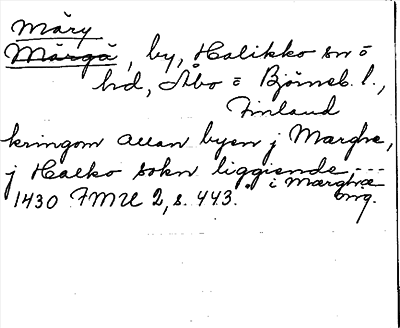 Märy
Märgä, by, Halikko sn o
hd, Åbo o Björneb. l.,
Finland
kringom allan byen j Marghe,
j Halko sokn liggiende ---
1430 FMU 2, s. 443. i Mærghæ
omg.